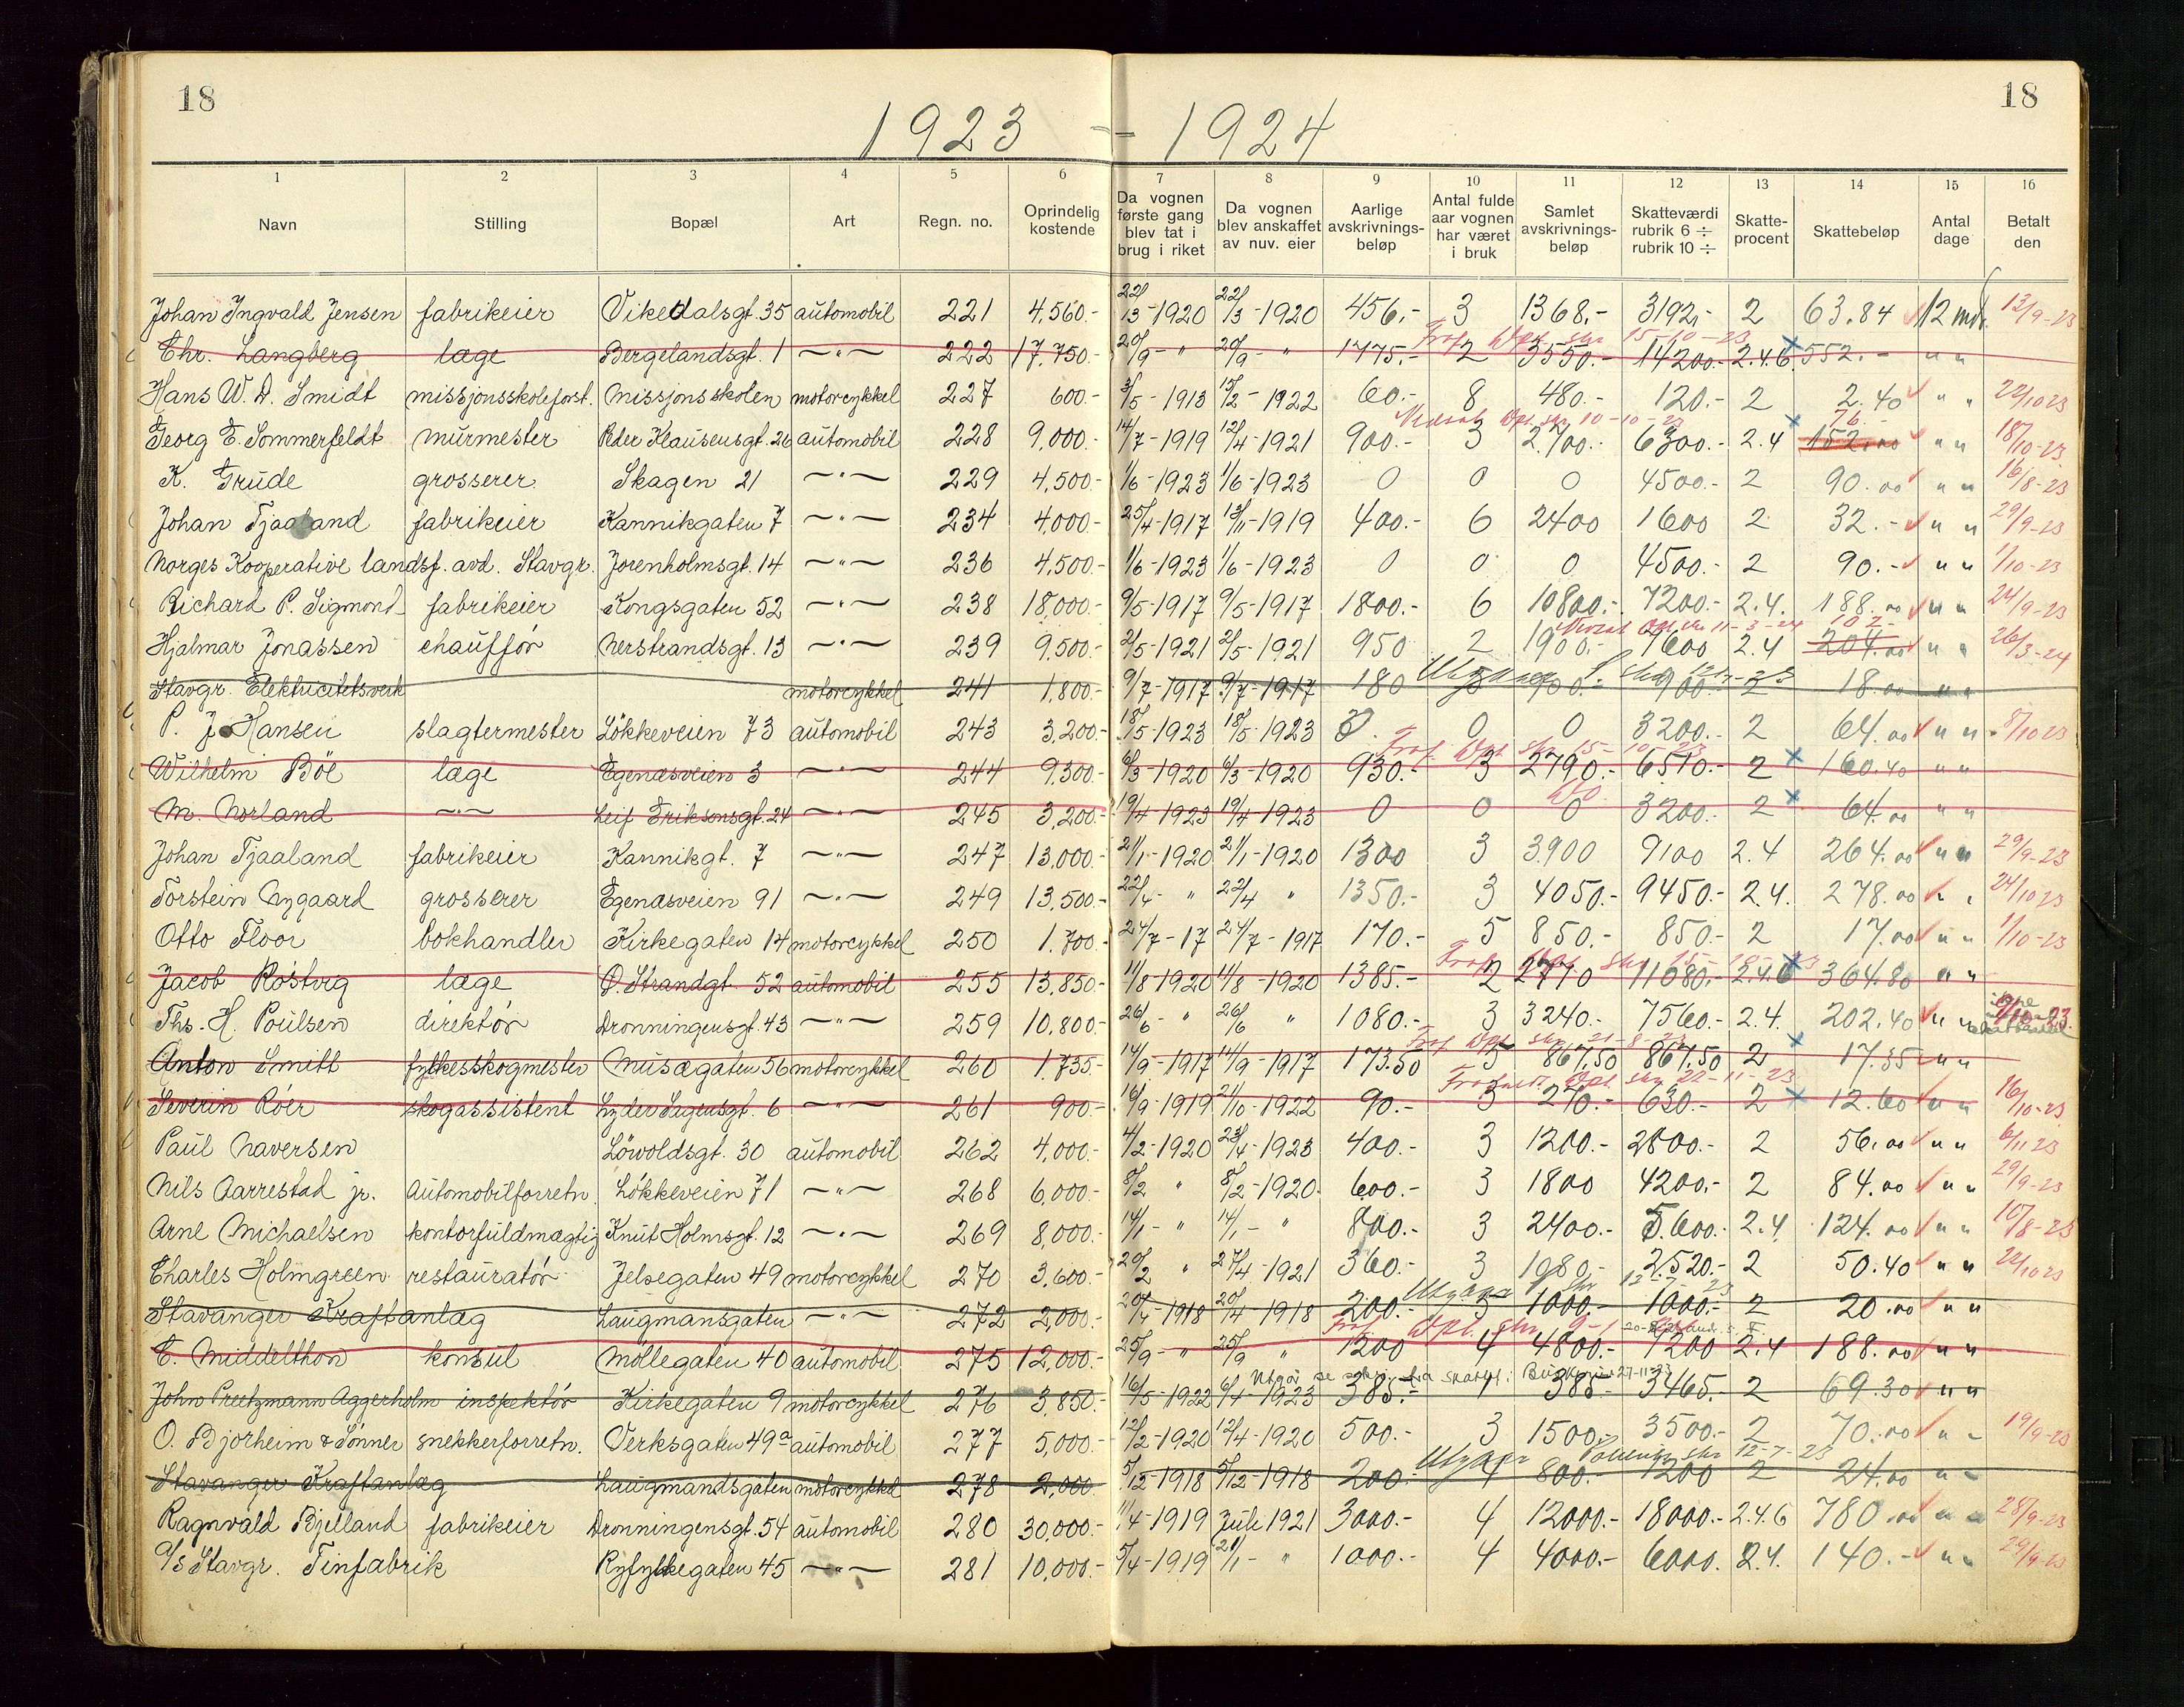 18
18
1923 - 1924
1 2 3 4 5 6 7 8 9 10 11 12 13 14 15 16
Navn Stilling Bopæl Art Regn. no. Oprindelig kostende Da vognen første gang blev tat i brug i riket Da vognen blev anskaffet av nuv. eier Aarlige avskrivningsbeløp Antal fulde aar vognen har været i bruk Samlet avskrivnings-beløp Skatteværdi rubrik 6 ÷ rubrik 10 ÷ Skatte-procent Skattebeløp Antal dage Betalt den
Johan Ingvald Jensen fabrikeier Vikedalsgt. 35 automobil 221 4,560.- 22/3-1920 22/3-1920 456.- 3 1368.- 3192.- 2 63.84 12 md. 13/9-23
Frit Dpt. skr 15-10-23
Chr. Langberg læge Bergelandsgt. 1 -"- 222 17,750.- 20/9- " 20/9- " 1775.- 2 3550.- 14200.- 2.4.6 552.- " "
Hans W. D. Smidt missjonsskoleforst. Missjonsskolen motorcykkel 227 600.- 3/5-1913 15/2-1922 60.- 8 480.- 120.- 2 2.40 " " 22/10 23
Nedsat Dpt. skr 10-10-23 76.-
Georg E. Sommerfeldt murmester Peder Klausensgt. 26 automobil 228 9,000.- 14/7-1919 12/4-1921 900.- 3 2.700.- 6300.- 2.4 152.00 " " 18/10-23
K. Grude grosserer Skagen 21 -"- 229 4,500.- 1/6-1923 1/6-1923 0 0 0 4500.- 2 90.00 " " 16/8-23
Johan Tjaaland fabrikeier Kannikgaten 7 -"- 234 4,000.- 25/4-1917 13/11-1919 400.- 6 2400 1600 2 32.- " " 29/9-23
Norges Kooperative landsf. avd. Stavgr. Jorenholmsgt. 14 -"- 236 4,500.- 1/6-1923 1/6-1923 0 0 0 4500.- 2 90.- " " 1/10-23
Richard P. Sigmond fabrikeier Kongsgaten 52 -"- 238 18,000.- 9/5-1917 9/5-1917 1800.- 6 10800.- 7200.- 2.4. 188.00 " " 24/9-23
Nedsat Dpt. skr 11-3-24 102.-
Hjalmar Jonassen chauffør Nerstrandsgt. 13 -"- 239 9,500.- 2/5-1921 2/5-1921 950 2 1900.- 7600 2.4 204.00 " " 26/3-24
Stavgr. Elektricitetsverk motorcykkel 241 1,800.- 9/7-1917 9/7-1917 180 5 900.- 900.- 2 18.00 " "
P. J. Hansen slagtermester Lökkeveien 73 automobil 243 3,200.- 18/5-1923 18/5-1923 0. 0 0 3200.- 2 64.00 " " 8/10 23
Frit. Dpt. skr 15-10-23
Wilhelm Böe læge Egenæsveien 3 -"- 244 9,300.- 6/3-1920 6/3-1920 930.- 3 2790.- 6510.- 2 160.40 " "
M. Norland -"- Leif Eriksonsgt. 24 -"- 245 3,200.- 19/4-1923 19/4-1923 0 0 0 3200.- 2 64.00 " "
Johan Tjaaland fabrikeier Kannikgt. 7 -"- 247 13,000.- 21/1-1920 21/1-1920 1300 3 3.900 9100 2.4 264.00 " " 29/9-23
Torstein Nygaard grosserer Egenæsveien 91 -"- 249 13,500.- 22/4- " 22/4 " 1350.- 3 4050.- 9450.- 2.4. 278.00 " " 24/10 23
Otto Floor bokhandler Kirkegaten 14 motorcykkel 250 1.700.- 24/7-17 24/7-1917 170.- 5 850.- 850.- 2 17.00 " " 1/10-23
Jacob Röstvig læge Ö. Strandgt. 52 automobil 255 13,850.- 11/8 1920 11/8-1920 1385.- 2 2770 11080.- 2.4.6 364.80 " "
Ths. H. Poulsen direktör Dronningensgt. 43 -"- 259 10,800.- 26/6- " 26/6 " 1080.- 3 3240.- 7560.- 2.4. 202.40 " "
Frit Dpt skr 21-8-23
Anton Smitt fylkesskogmester Musægaten 56 motorcykkel 260 1.735.- 14/9-1917 14/9-1917 173.50 5 867,50 867,50 2 17.35 " "
Dpt. skr 22-11-23
Severin Röer skogassistent Lyder Sagensgt. 6 -"- 261 900.- 16/9-1919 21/10-1922 90.- 3 270.- 630.- 2 12.60 " " 16/10-23
Paul Naversen Lövoldsgt. 30 automobil 262 4,000.- 4/2-1920 23/4-1923 400.- 3 1200.- 2800.- 2 56.00 " " 6/11 23
Nils Aarrestad jr. Automobilforretn. Lökkeveien 71 -"- 268 6,000.- 8/2 " 8/2-1920. 600.- 3 1800 4200.- 2 84.00 " " 29/9-23
Arne Michaelsen kontorfuldmægtig Knut Holmsgt. 12 -"- 269 8,000.- 14/1- " 14/1- " 800.- 3 2400.- 5.600.- 2.4. 124.00 " " 10/8-23
Charles Holmgreen restauratör Jelsegaten 49 motorcykkel 270 3,600.- 20/2 " 27/4-1921 360.- 3 1080.- 2.520.- 2 50.40 " " 22/10 23
Stavanger Kraftanlæg Laugmansgaten -"- 272 2,000.- 20/4-1918 20/4-1918 200.- 5 1000.- 1000.- 2 20.00 " "
E. Middelthon konsul Möllegaten 40 automobil 275 12,000.- 25/9- " 25/9 " 1200 4 4800.- 7200 2.4 188.00 " "
John Preetzmann Aggerholm inspektör Kirkegaten 9 motorcykkel 276 3,850.- 16/5-1922 6/4-1923 385.- 1 385.- 3465.- 2 69.30 " "
O. Bjorheim & Sönner snekkerforretn. Verksgaten 49a automobil 277 5,000.- 12/2-1920 12/4-1920 500.- 3 1500.- 3500.- 2 70.00 " - 19/9-23
Utgaar skr 12-7-23
Stavanger Kraftanlæg Laugmandsgaten motorcykkel 278 2,000.- 5/12-1918 5/12-1918 200. 4 800.- 1200 2 24.00 " -
Ragnvald Bjelland fabrikeier Dronningensgt. 54 automobil 280 30,000.- 11/4-1919 Juli 1921 3000.- 4 12000.- 18000.- 2.4.6 780.00 " " 28/9-23
A/S Stavgr. Tinfabrik Ryfylkegaten 45 -"- 281 10,000.- 5/4-1919 21/1- " 1000.- 4 4000.- 6000. 2.4. 140.- " " 29/9-23